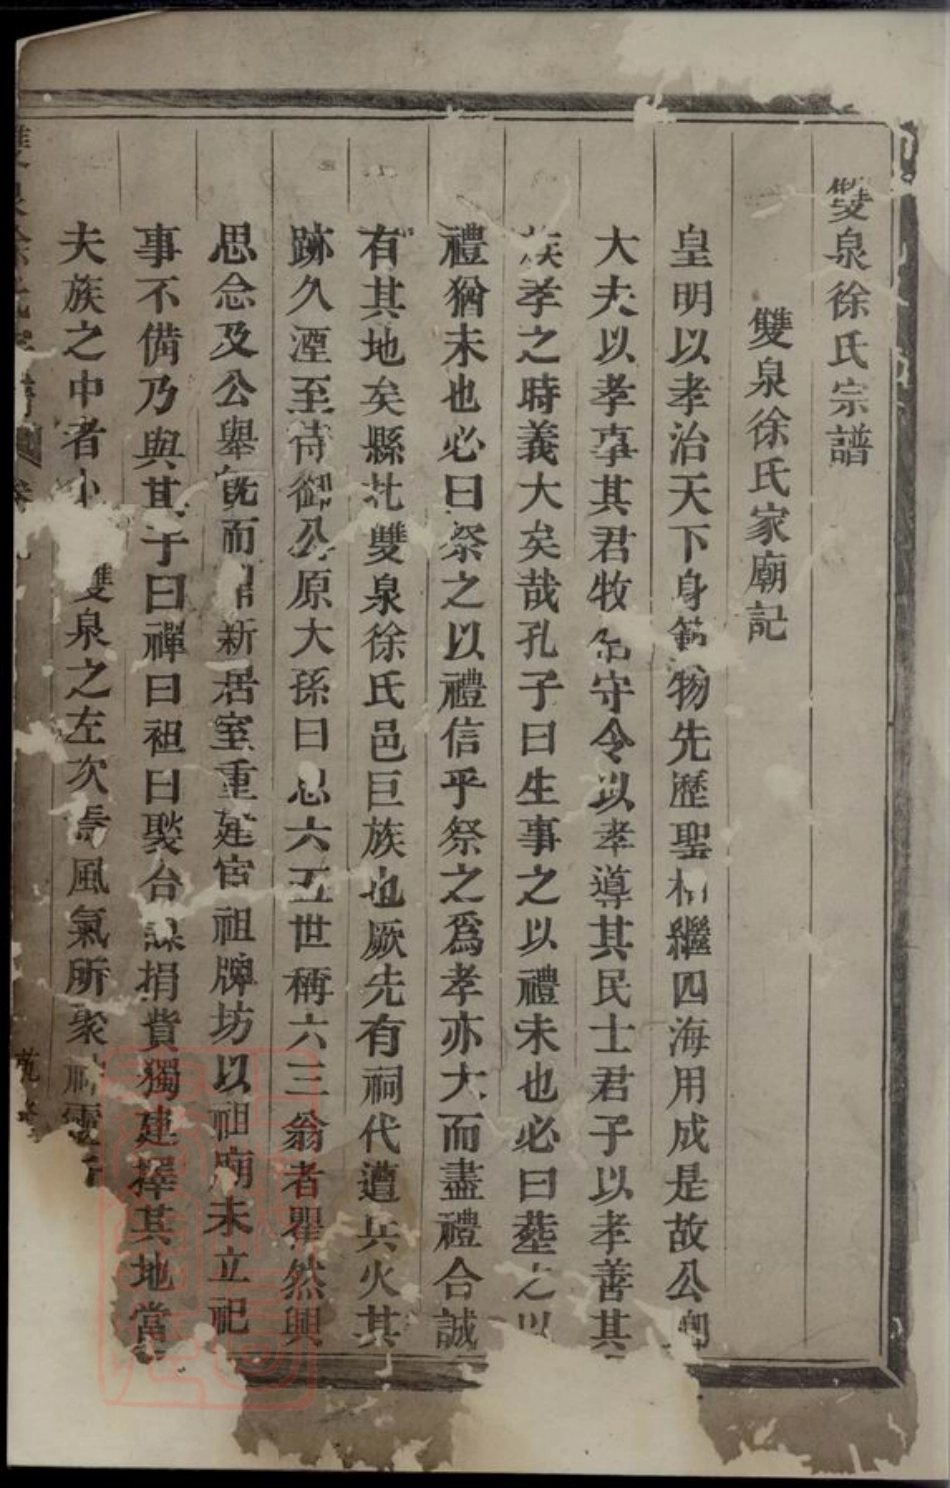 雙泉徐氏宗譜
雙泉徐氏家廟記
皇明以孝治天下身範物先歷聖相繼四海用成是故公卿
大夫以孝事其君牧伯守令以孝導其民士君子以孝善其
族孝之時義大矣哉孔子曰生事之以禮未也必曰塟之以
禮猶未也必曰祭之以禮信乎祭之爲孝亦大而盡禮合誠
有其地矣縣北雙泉徐氏邑巨族也厥先有祠代遭兵火其
跡久湮至待御公原大孫曰思六五世稱六三翁者瞿然興
思念及公舉旣而新居室重建宦祖牌坊以祖廟未立祀
事不備乃與其子曰禪曰祖曰褧台謀捐費獨建擇其地當
夫族之中者雙泉之左次焉風氣所聚